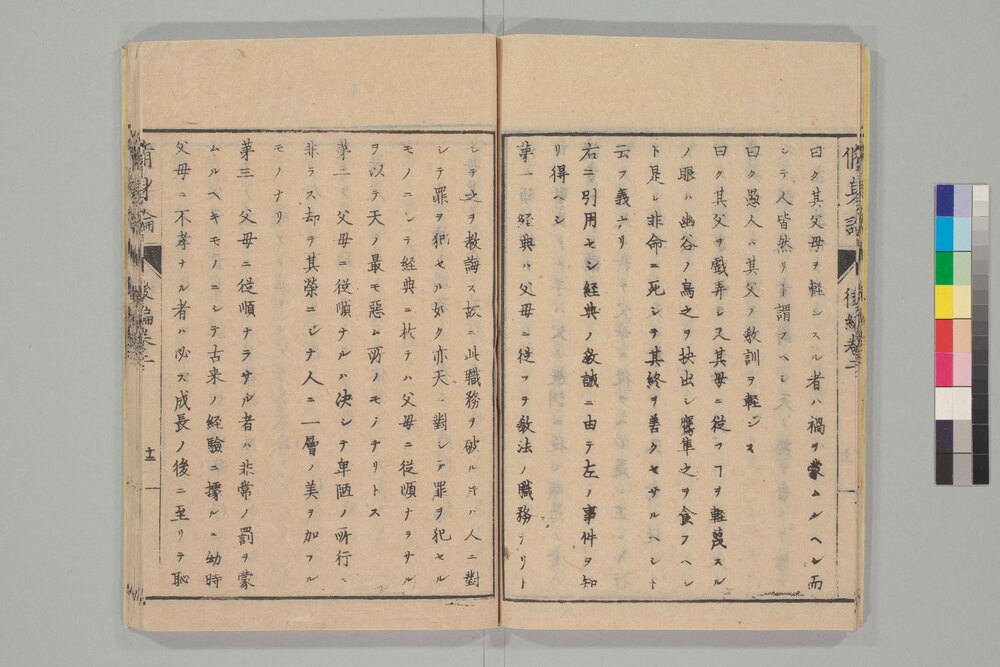 曰ク其父母ヲ軽ンスル者ハ禍ヲ蒙ムルヘシ而
シテ人皆然リト謂フヘシ
曰ク愚人ハ其父ノ教訓ヲ軽ンス
曰ク其父ヲ戯弄シ又其母ニ従フヿヲ軽蔑スル
ノ眼ハ幽谷ノ烏之ヲ抉出シ鷹隼之ヲ食フヘシ
ト是レ非命ニ死シテ其終ヲ善クセサルヘシト
云フ義ナリ
右ニ引用セシ経典ノ教誡ニ由テ左ノ事件ヲ知
リ得ヘシ
第一 経典ハ父母ニ従フヲ教法ノ職務ナリト
シテ之ヲ教誨ス故ニ此職務ヲ破ル片ハ人ニ對
シテ罪ヲ犯セル如ク亦天ニ對シテ罪ヲ犯セル
モノニシテ経典ニ於テハ父母ニ従順ナラサル
ヲ以テ天ノ最モ惡ム所ノモノナリトス
第二 父母ニ従順ナルハ決シテ卑陋ノ所行ニ
非ラス却テ其榮ニシテ人ニ一層ノ美ヲ加フル
モノナリ
第三 父母ニ従順ナラサル者ハ非常ノ罰ヲ蒙
ムルヘキモノニシテ古来ノ経驗ニ據ルニ幼時
父母ニ不孝ナル者ハ必ス成長ノ後ニ至リテ恥
後編巻二
十三